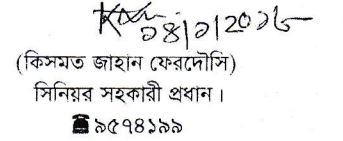 ০৪/০১/২০১৮
(কিসমত জাহান ফেরদৌসি)
সিনিয়র সহকারী প্রধান।
☎৯৫৭৪১৯৯